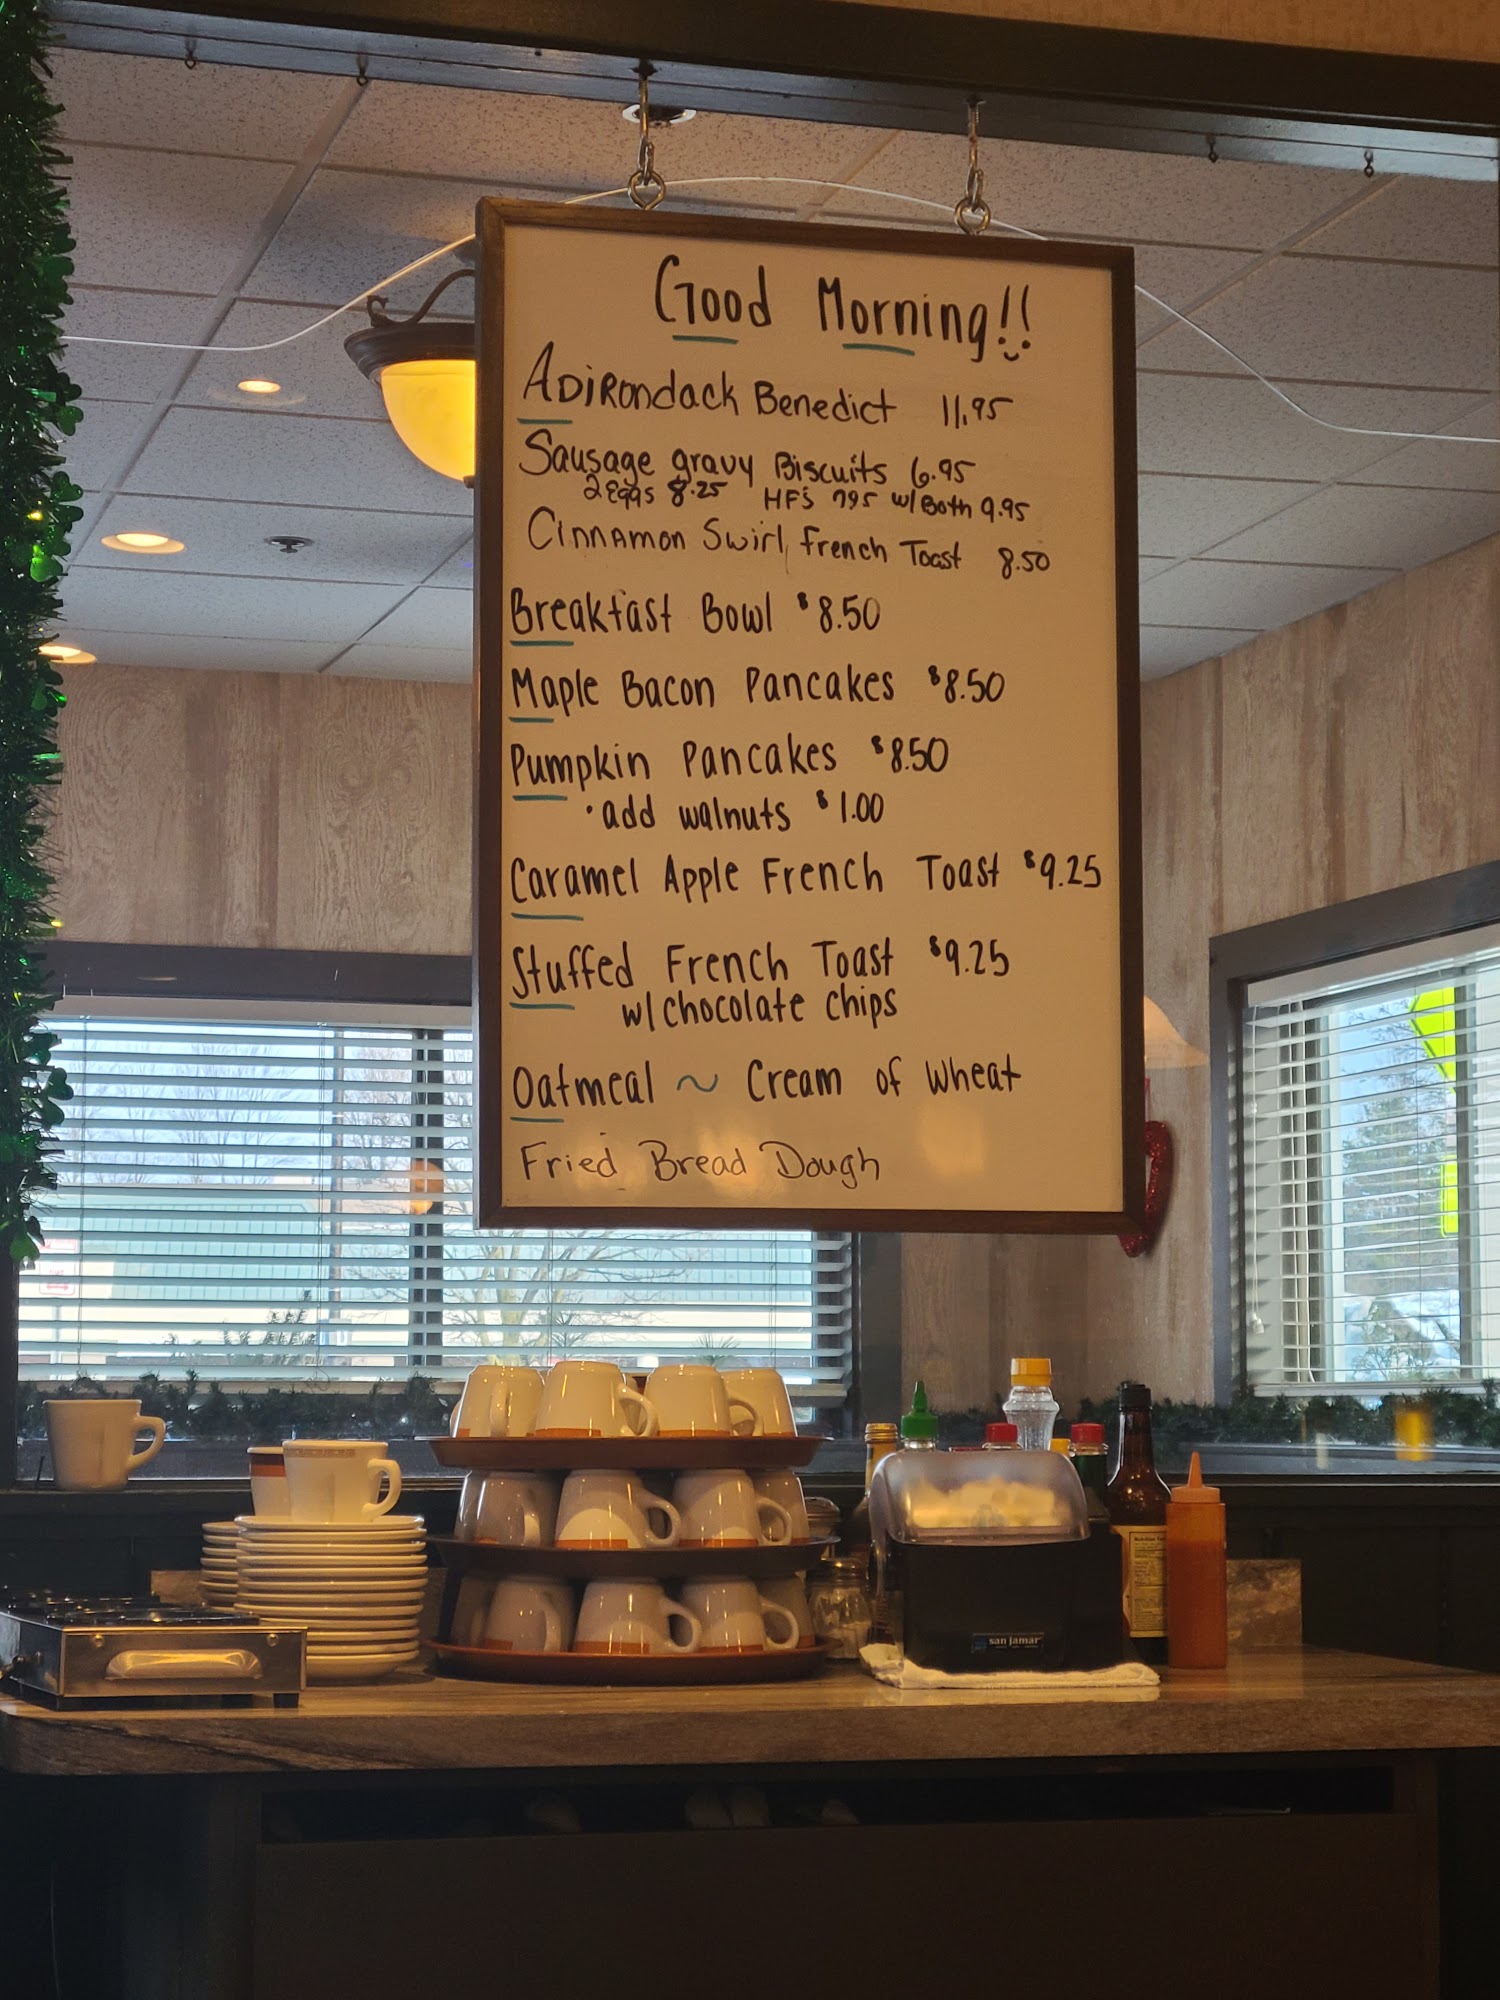 Good Morning!!
Adirondack Benedict 11.95
Sausage gravy Biscuits 6.95
2 Eggs 8.25 HF's 7.95 w/Both 9.95
Cinnamon Swirl French Toast 8.50
Breakfast Bowl $8.50
Maple Bacon Pancakes $8.50
Pumpkin Pancakes $8.50
• add walnuts $1.00
Caramel Apple French Toast $9.25
Stuffed French Toast $9.25
w/chocolate chips
Oatmeal ~ Cream of Wheat
Fried Bread Dough
san jamar